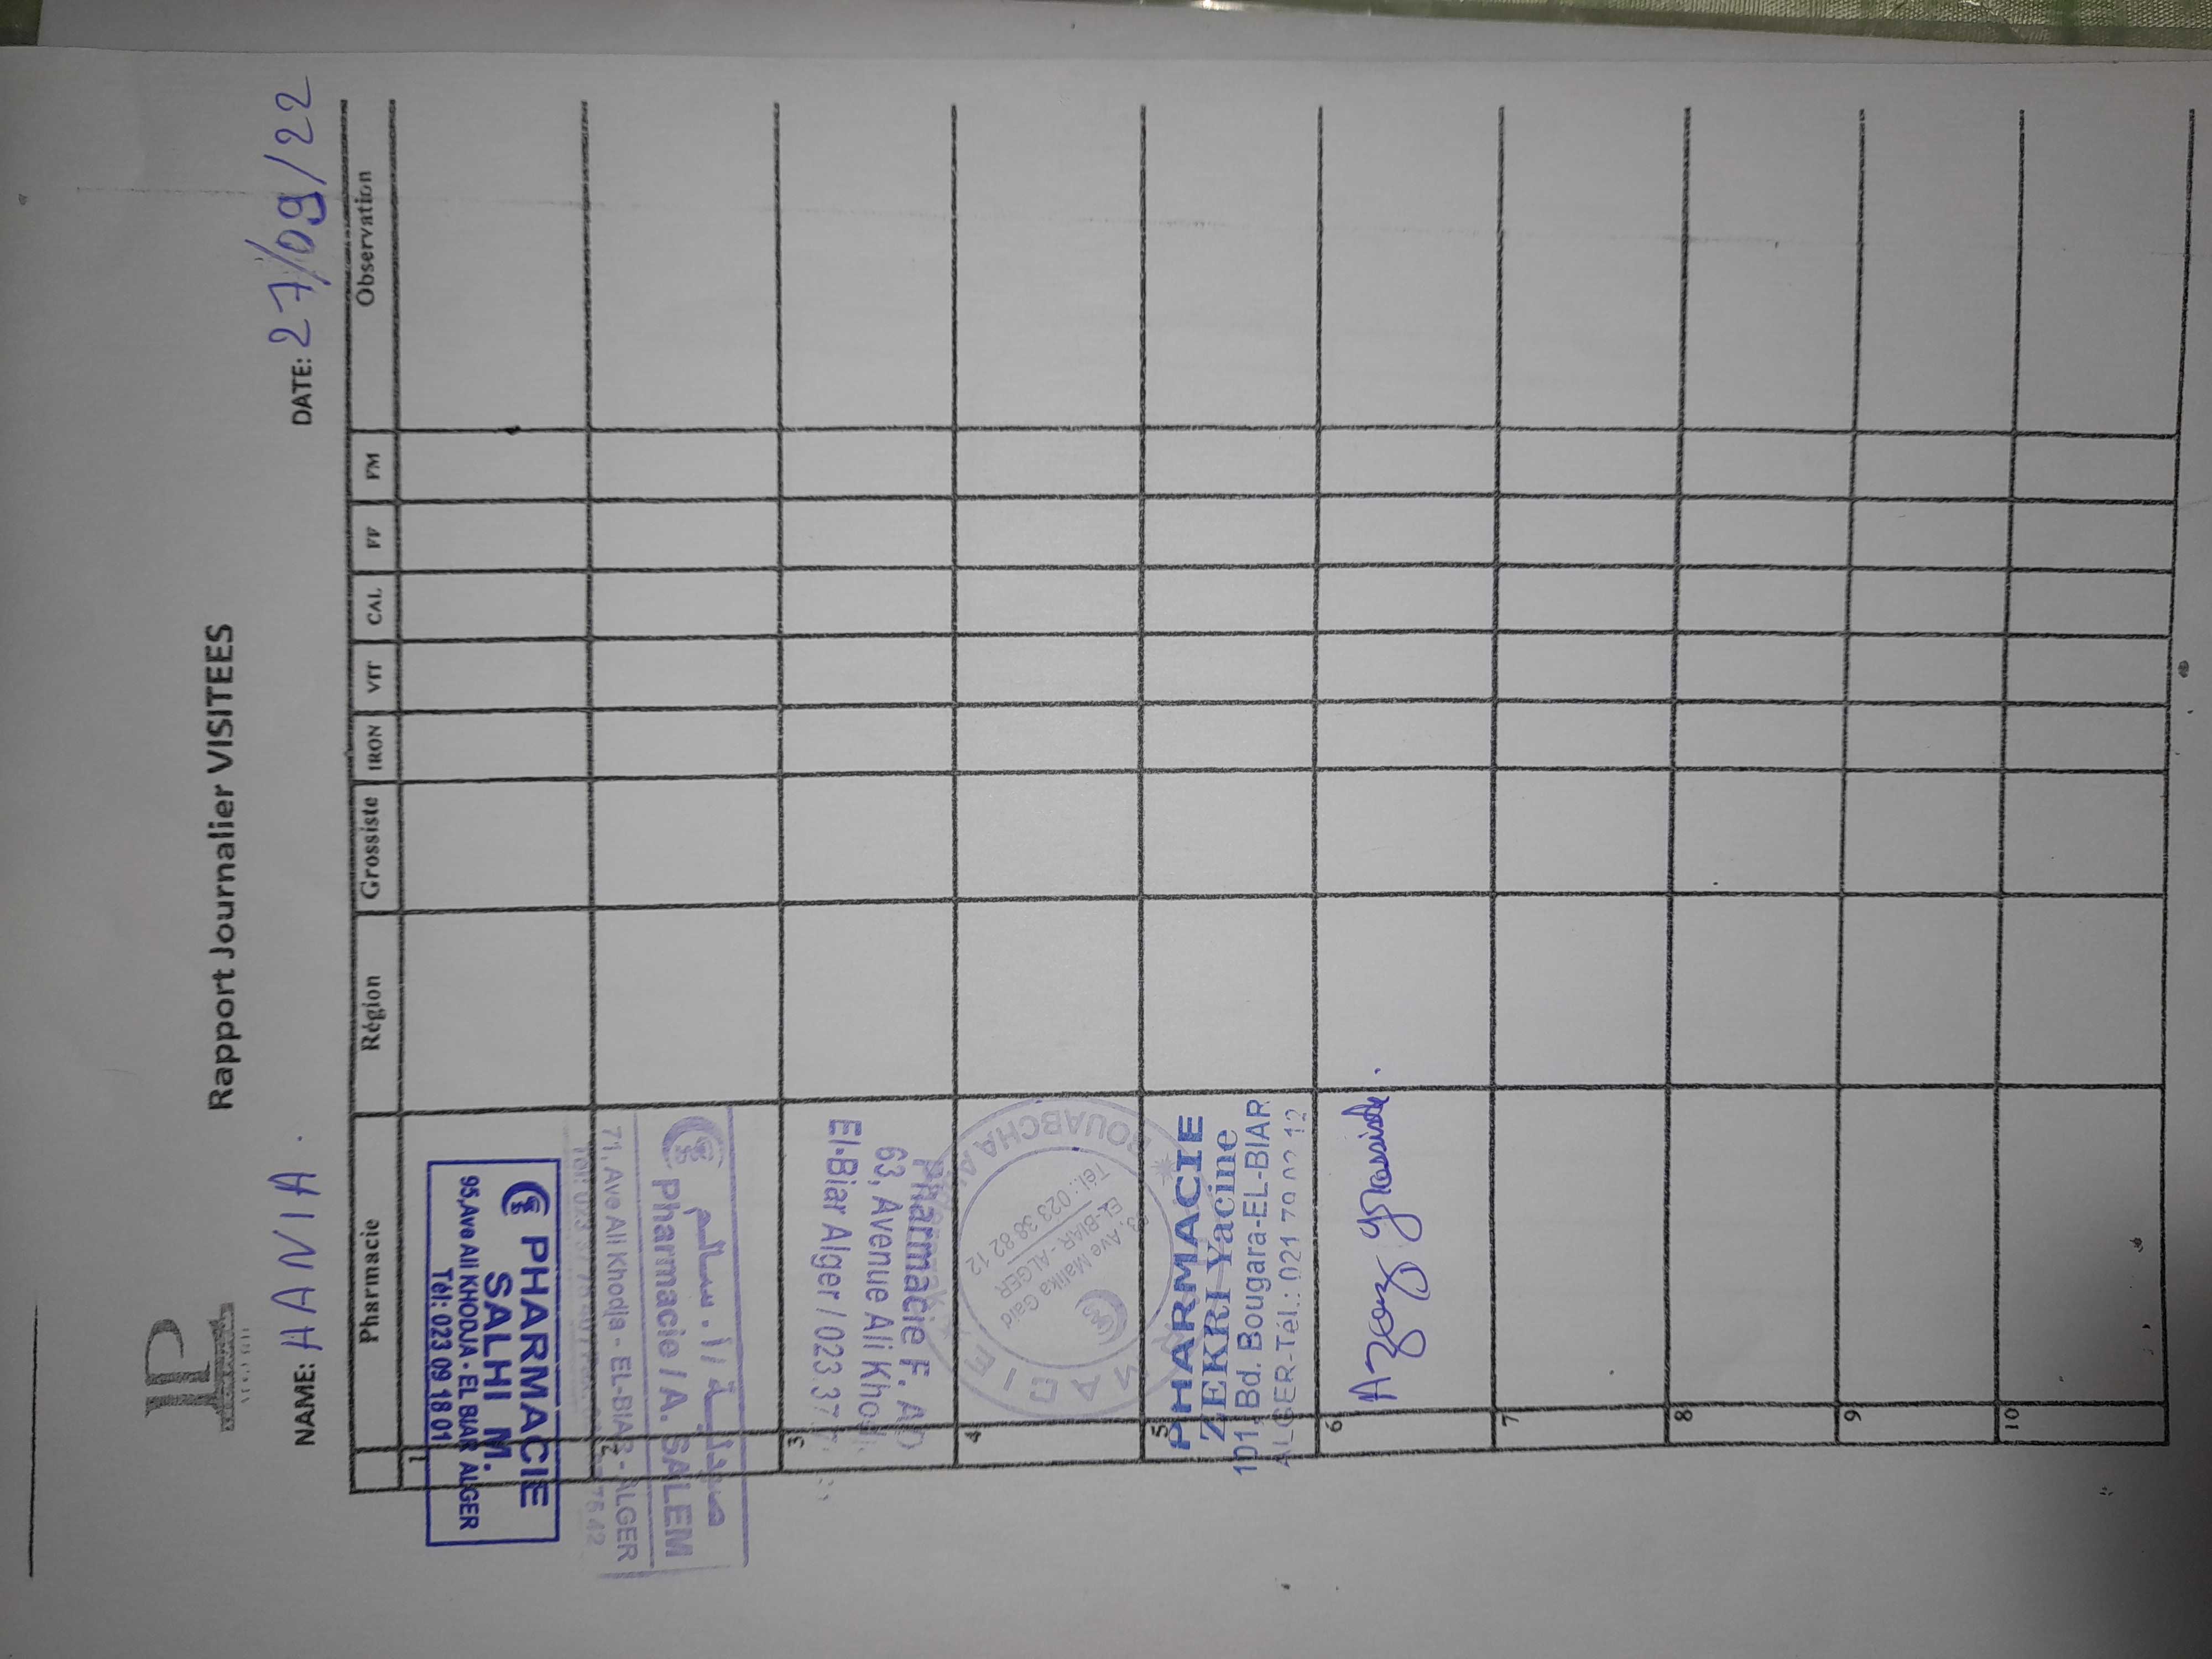 LP
ALGERIE
Rapport Journalier VISITEES
NAME: HANIA.
DATE: 27/09/22
Pharmacie Région Grossiste IRON VIT CAL FF FM Observation
1
PHARMACIE
SALHI M.
95,Ave Ali KHODJA - EL BIAR ALGER
Tél: 023 09 18 01
2
صيدلية /أ. سالم
Pharmacie / A. SALEM
71, Ave Ali Khodja - EL-BIAR - ALGER
Tél: 023 37
3
Pharmacie F.
63, Avenue Ali
El-Biar Alger / 023.37
4
BOUABCHA
Ave Malika Gaid
EL-BIAR - ALGER
Tél.: 023 38 82 12
5
PHARMACIE
ZEKRI Yacine
101, Bd. Bougara-EL-BIAR
ALGER-Tél.: 021 79 02 12
6
Azoz grossiste.
7
8
9
10